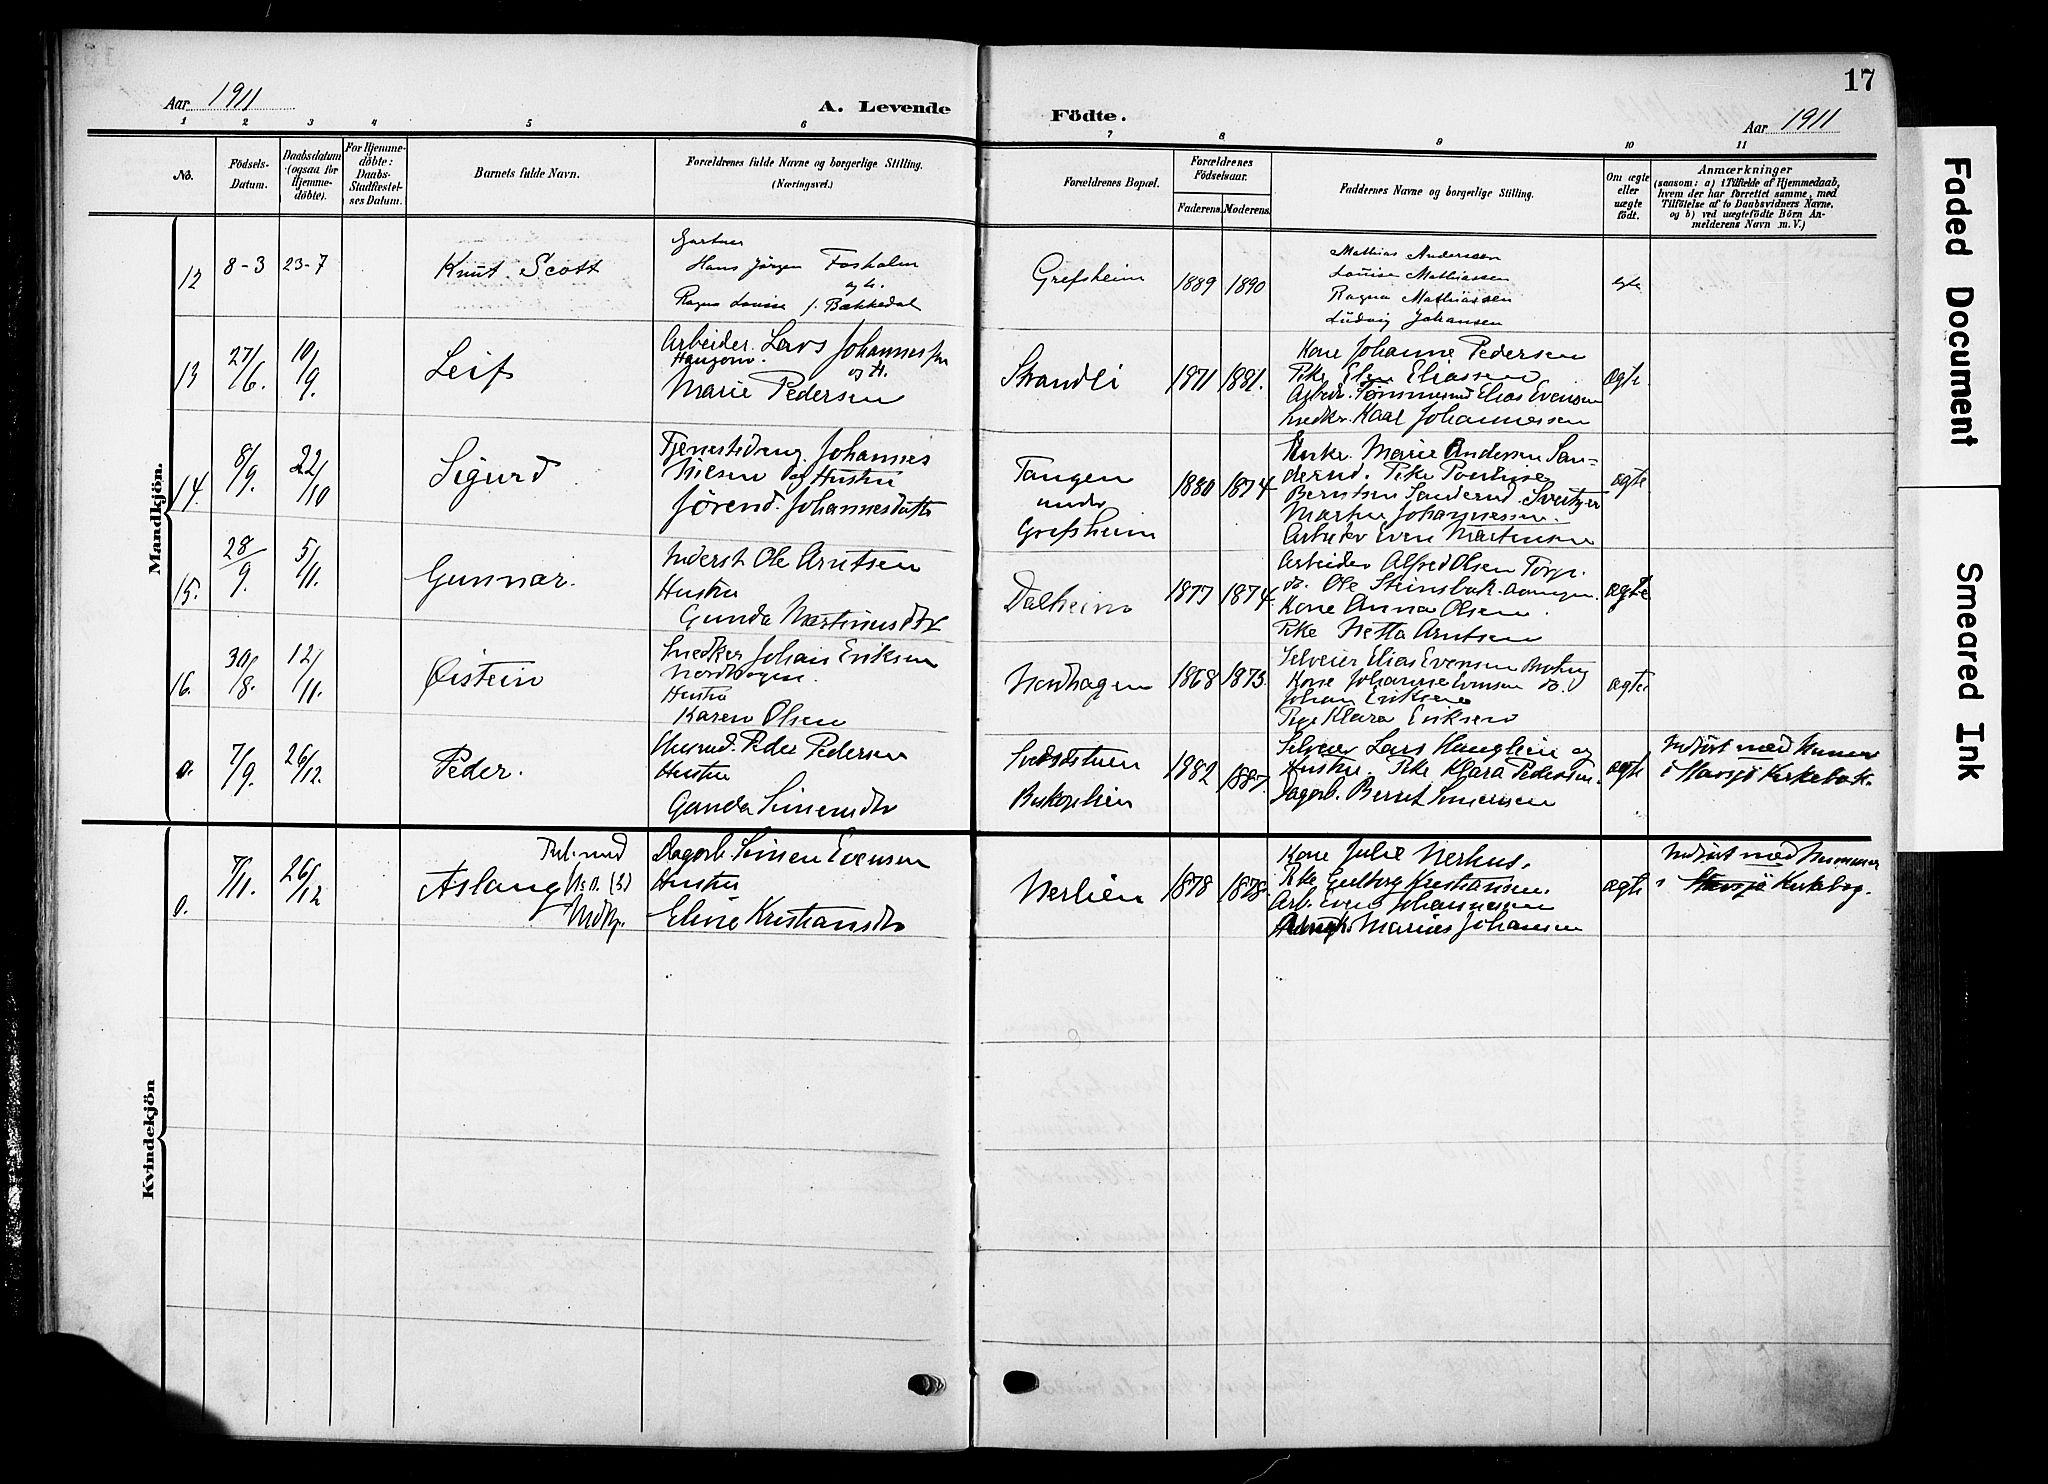 17
Aar 1911
A. Levende
Födte.
Aar 1911
1 2 3 4 5 6 7 8 9 10 11
No.
Födsels-
Datum.
Daabsdatum
(ogsaa for
Hjemme-
döbte).
For Hjemme-
döbte:
Daabs-
Stadfæstel-
ses Datum.
Barnets fulde Navn.
Forældrenes fulde Navne og borgerlige Stilling.
(Næringsvei.)
Forældrenes Bopæl.
Forældrenes
Födselsaar.
Faderens. Moderens.
Faddernes Navne og borgerlige Stilling.
Om ægte
eller
uægte
födt.
Anmærkninger
(saasom: a) i Tilfælde af Hjemmedaab,
hvem der har forrettet samme, med
Tilföielse af to Daabsvidners Navne.
og b) ved uægtefödte Börn An-
melderens Navn m. V.)
Mandkjön.
12 8-3 23-7
Knut Scott
Gartner
Hans Jörgen Fosholm
og h.
Ragna Louise f. Bækkedal
Grefsheim
1889 1890
Mathias Anderssen
Louise Mathiassen
Ragna Mathiassen
Ludvig Johansen
egte
13 27/6. 10/9.
Leif
Arbeider. Lars Johannessen
og H.
Marie Pedersen
Strandli
1871 1881.
Kone Johanne Pedersen
Pike Elen Eliassen
Arbeidr. Tømmermd Elias Evensen
Snedkr. Karl Johannessen
ægte
14. 8/9. 22/10
Sigurd
Tjenestedreng. Johannes
Nilsen og Hustru
Jörend. Johannesdatter
Tangen
under
Grefsheim
1880 1874
Enke. Marie Andersen San=
derud. Pike Pauline
Berntsen Sanderud. Sveitzer
Martin Johannessen.
Arbeider Even Martinsen
ægte
15. 28/9. 5/11.
Gunnar.
Inderst Ole Arntsen
Hustru
Gunda Martinusdtr
Dalheim
1877 1874.
Arbeider Alfred Olsen Torp.
do. Ole Steinsbak
Kone Anna Olsen
Pike Netta Arntsen
ægte
16. 30/8. 12/11.
Øistein
Snedker Johan Eriksen
Nordhagen.
Hustru
Karen Olsen
Nordhagen
1868 1873.
Selveier Elias Evensen
Kone Johanne Evensen do.
Johan Eriksen
Pige Klara Eriksen
ægte
0. 7/9. 26/12.
Peder.
Husmd. Peder Pedersen
Hustru
Gunda Simensdtr
Biskoplien
1882 1887.
Selveier Lars Hauglien og
Hustru. Pike Klara Pedersen.
Dagarb. Bernt Simensen
ægte
Indført med Numer
i Stavsjø Kirkebok.
Kvindekjön
0. 7/11. 26/12
Aslaug
Dagarb. Simen Evensen
Hustru
Eline Kristiansdtr
Nerlien
1878 1878.
Kone Julie Nerhus.
Pike Gudborg Kristiansen.
Arb. Even Johannessen
Marius Johansen
ægte
Indført med Nummer
i Stavsjø Kirkebog.
Faded Document
Smeared Ink